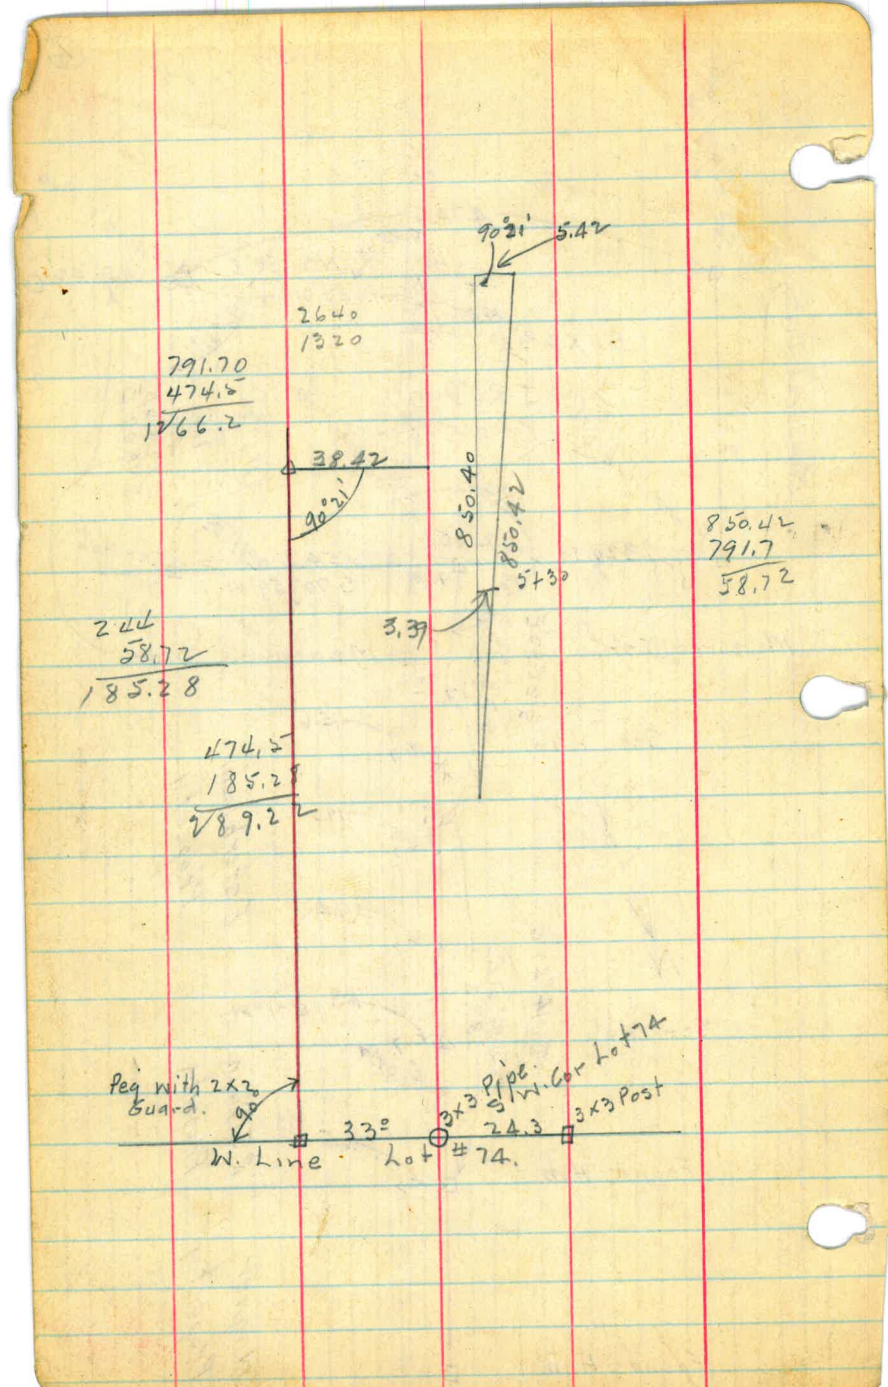 90°21' 5.42
2640
1320
791.70
474.5
1266.2
38.42
90°21'
850.40
850.42
5+30
3.39
850.42
791.7
58.72
244
58.72
185.28
474.5
185.28
289.22
Peg with 2x2
Guard.
90°
3x3 Pipe
S/W. Cor Lot 74
33º
24.3
3x3 Post
W. Line Lot # 74.